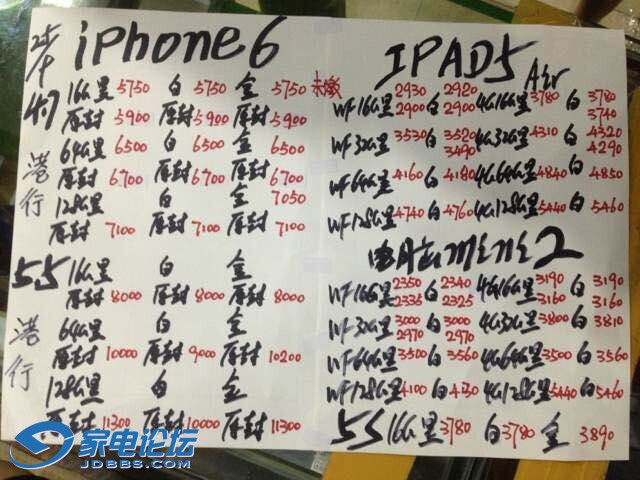 iPhone6
4.7 16G黑 5750 白 5750 金 5750 未激
原封 5900 原封 5900 原封 5900
64G黑 6500 白 6500 金 6500
原封 6700 原封 6700 原封 6700
128G黑 白 金 7050
原封 7100 原封 7100 原封 7100
港行
5.5 16G黑 白 金
原封 8000 原封 8000 原封 8000
64G黑 白 金
原封 10000 原封 9000 原封 10200
128G黑 白 金
原封 11300 原封 10000 原封 11300
港行
IPAD5 Air
WF16G黑 2930 2900 白 2920 2900 4G16G黑 3780 白 3780 3740
WF32G黑 3530 白 3520 3490 4G32G黑 4310 白 4320 4290
WF64G黑 4160 白 4180 4G64G黑 4840 白 4850
WF128G黑 4740 白 4760 4G128G黑 5440 白 5460
2
WF16G黑 2350 2335 白 2340 2325 4G16G黑 3190 3160 白 3190 3160
WF32G黑 3000 2970 白 3000 2970 4G32G黑 3800 白 3810
WF64G黑 3500 白 3560 4G64G黑 3500 白 3560
WF128G黑 4100 白 4130 4G128G黑 5440 白 5460
5S 16G黑 3780 白 3780 金 3890
家电论坛
JDBBS.COM